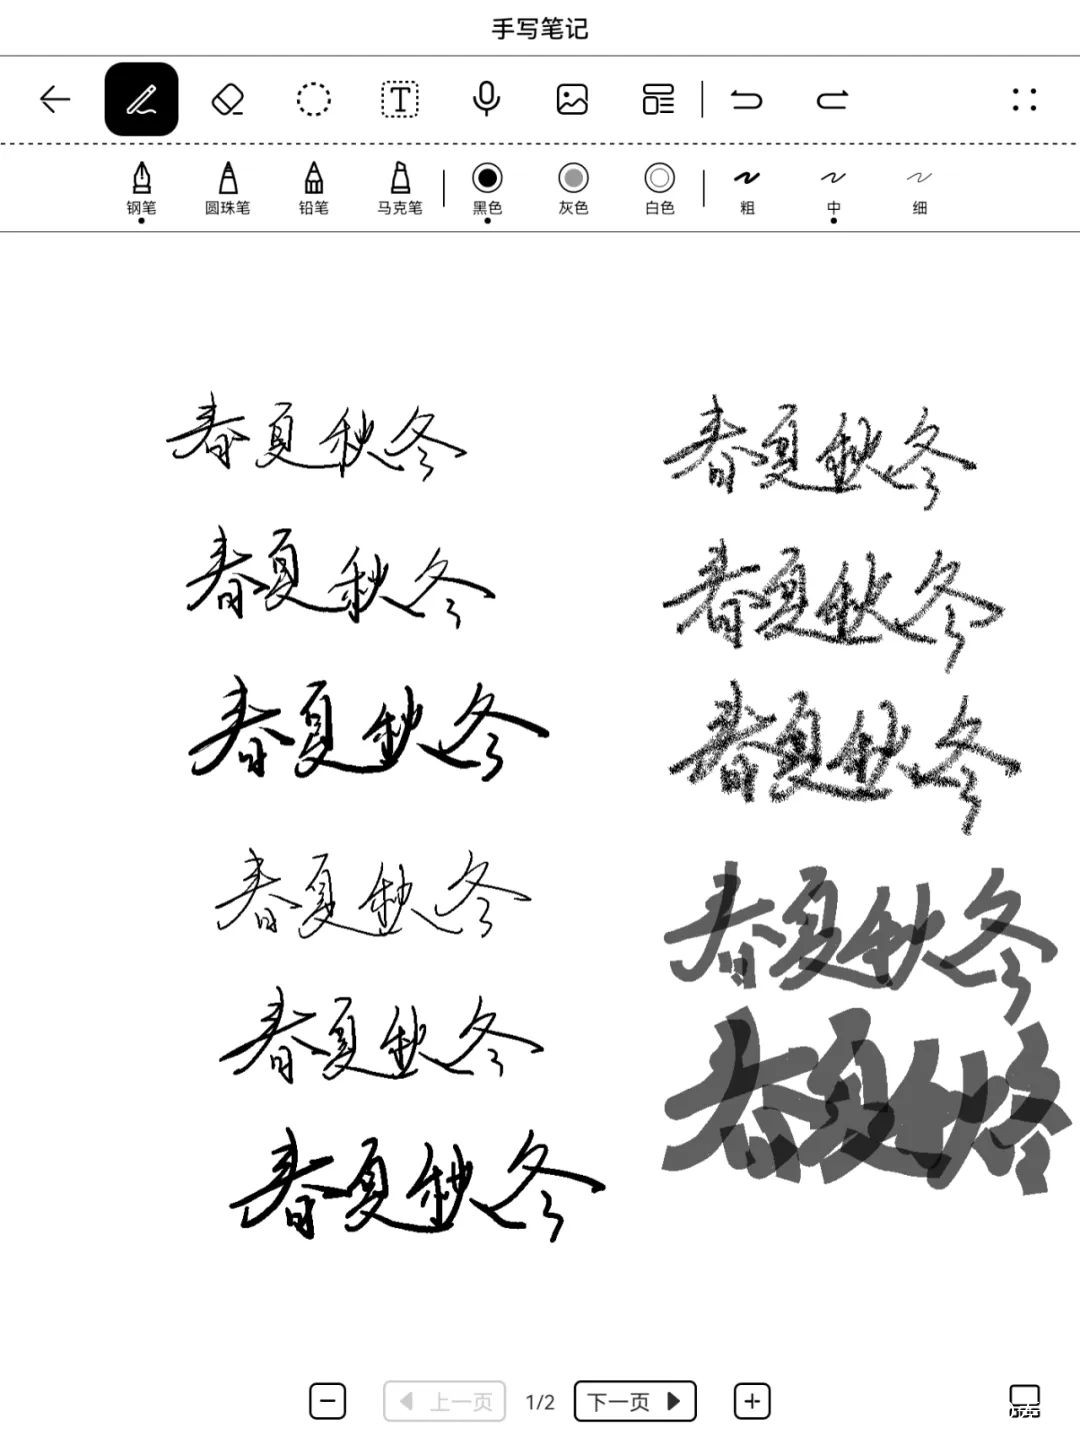 手写笔记
钢笔 圆珠笔 铅笔 马克笔 黑色 灰色 白色 粗 中 细
春夏秋冬
春夏秋冬
春夏秋冬
春夏秋冬
春夏秋冬
春夏秋冬
春夏秋冬
春夏秋冬
春夏秋冬
春夏秋冬
春夏秋冬
上一页 1/2 下一页